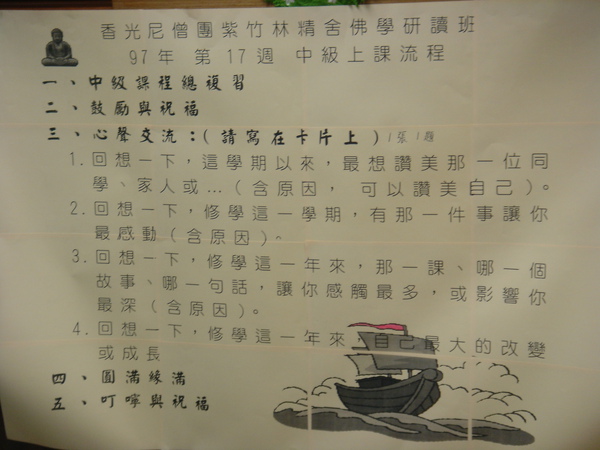 香光尼僧團紫竹林精舍佛學研讀班
97年 第17週 中級上課流程
一、中級課程總複習
二、鼓勵與祝福
三、心聲交流：(請寫在卡片上) 1張1題
1.回想一下，這學期以來，最想讚美那一位同
學、家人或…(含原因， 可以讚美自己)。
2.回想一下，修學這一學期，有那一件事讓你
最感動(含原因)。
3.回想一下，修學這一年來，那一課、哪一個
故事、哪一句話，讓你感觸最多，或影響你
最深(含原因)。
4.回想一下，修學這一年來，自己最大的改變
或成長
四、圓滿緣滿
五、叮嚀與祝福